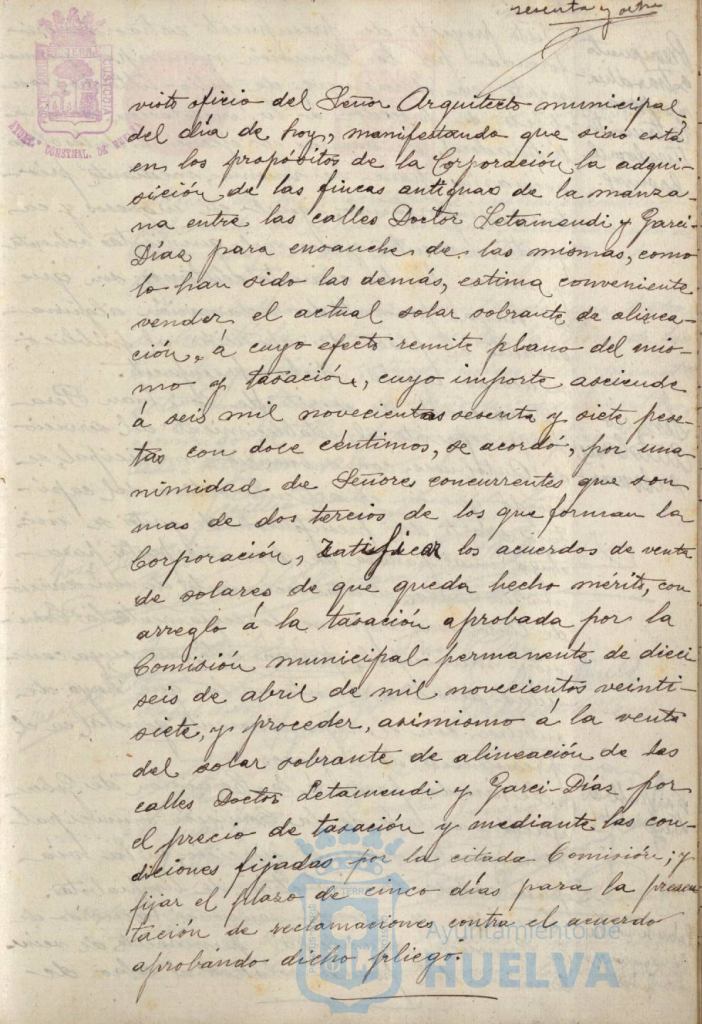 sesenta y ocho
AYUNT.º CONSTNAL. DE HUE
visto oficio del Señor Arquitecto municipal,
del día de hoy, manifestando que sino está
en los propósitos de la Corporación la adqui-
sición de las fincas antiguas de la manza-
na entre las calles Doctor Letamendi y Garci-
Díaz para ensanche de las mismas, como
lo han sido las demás, estima conveniente
vender el actual solar sobrante de alinea-
ción, á cuyo efecto remite plano del mis-
mo y tasación, cuyo importe asciende
á seis mil novecientas sesenta y siete pese-
tas con doce céntimos, se acordó, por una
nimidad de Señores concurrentes que son
mas de dos tercios de los que forman la
Corporación, ratificar los acuerdos de venta
de solares de que queda hecho mérito, con
arreglo á la tasación aprobada por la
Comisión municipal permanente de dieci
seis de abril de mil novecientos veinti-
siete, y proceder, asimismo á la venta
del solar sobrante de alineación de las
calles Doctor Letamendi y Garci-Díaz por
el precio de tasación y mediante las con-
diciones fijadas por la citada Comisión; y
fijar el plazo de cinco días para la presen
tación de reclamaciones contra el acuerdo
aprobando dicho pliego.
Ayuntamiento de
HUELVA